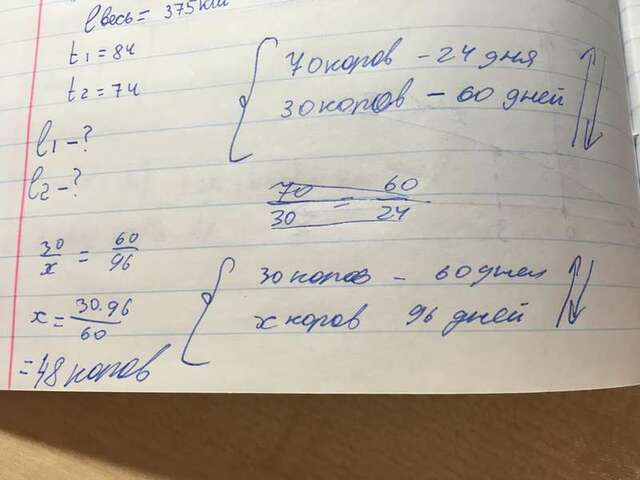 lвесь = 375 км
t1 = 8ч
t2 = 7ч
l1 - ?
l2 - ?
70 коров - 24 дня
30 коров - 60 дней
70/30 = 60/24
30 коров - 60 дней
x коров 96 дней
30/x = 60/96
x = 30·96/60
= 48 коров